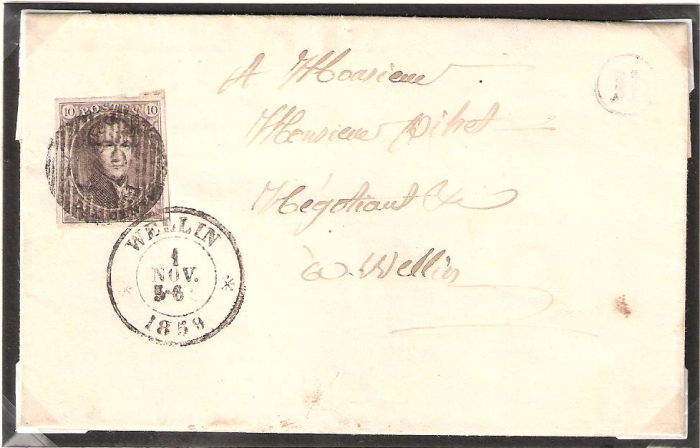 10 POSTES 10
A Monsieur
Monsieur Pihet
Négotiant &
à Wellin
WELLIN
1
NOV.
5-6
1859